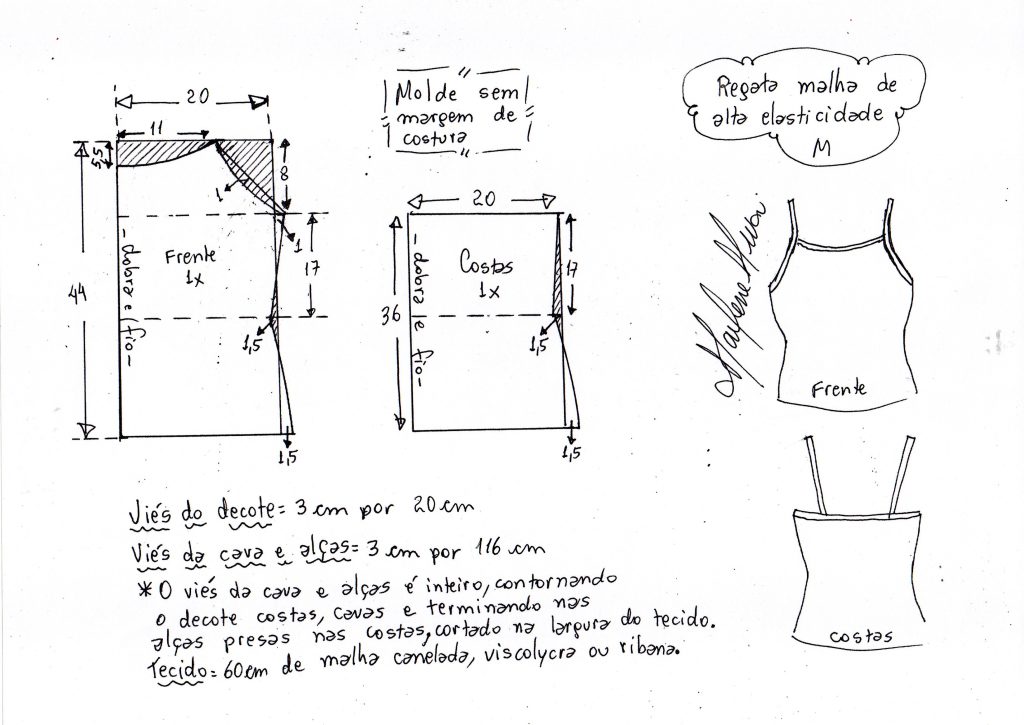 20
11
5,5
8
1
1
44
Frente
1x
17
- dobra e fio -
1,5
1,5
Molde sem
margem de
costura
20
Costas
1x
17
36
- dobra e fio -
1,5
1,5
Regata malha de
alta elasticidade
M
Frente
costas
Viés do decote = 3 cm por 20 cm
Viés da cava e alças = 3 cm por 116 cm
* O viés da cava e alças é inteiro, contornando
o decote costas, cavas e terminando nas
alças presas nas costas, cortado na largura do tecido.
Tecido = 60 cm de malha canelada, viscolycra ou ribana.